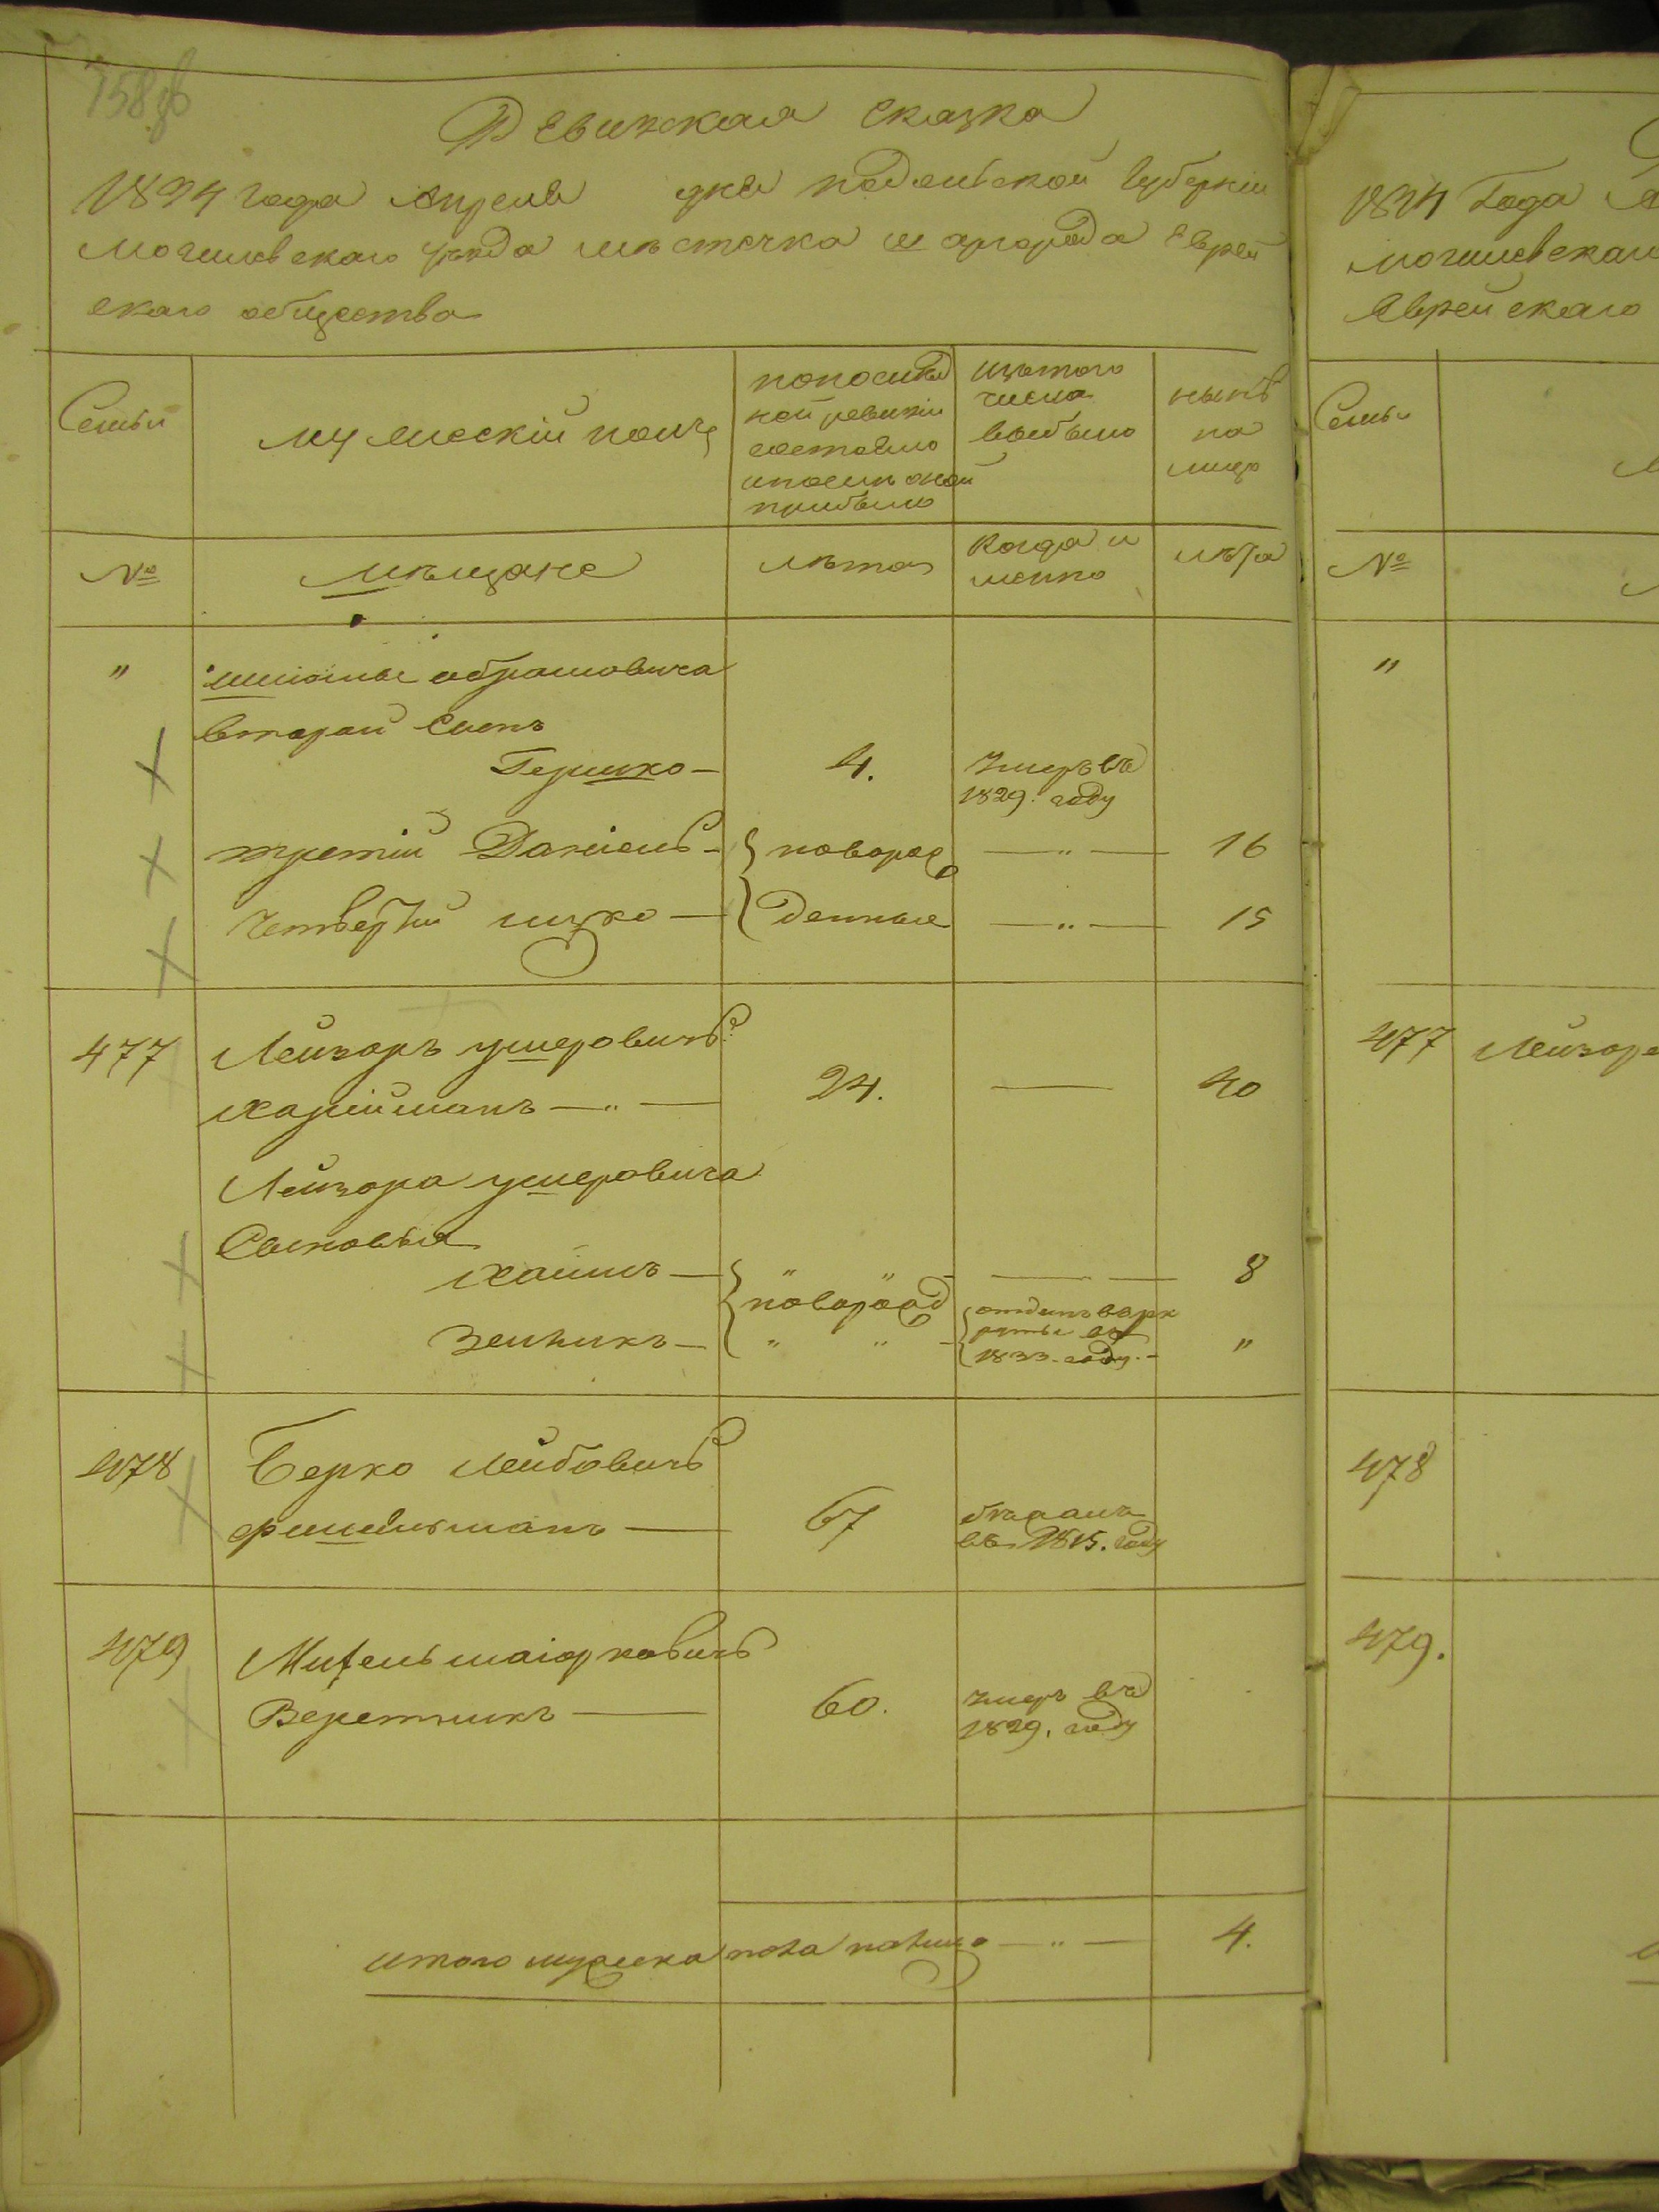 Ревижская сказка
1834 года Апреля дня подольской губерніи
могилевскаго уѣзда мѣстечка шаргорода Еврей
скаго общества
Семьи
мужескій полъ
по послѣд
ней ревизіи
состояло
и послѣ оной
прибыло
изъ того
числа
выбыло
нынѣ
на
лицо
№
мѣщане
лѣта
когда и
менно
лѣта
"
шліомы абрамовича
вторай Сынъ
Гершко —
4.
умеръ въ
1829. году
третій Даніель —
новорож
— " —
16
Четвертый ицко —
денные
— " —
15
477
Лейзоръ ушеровичъ
харійманъ — " —
24.
—
40
Лейзора ушеровича
Сыновья
хаимъ —
" "
— —
8
новорожд
Зельникъ —
" "
отданъ въ рк
руты въ
1833. году. —
"
478
Берко лейбовичъ
фишельманъ —
67
бѣжалъ
въ 1815. году
479
Михель маіорковичъ
Веретникъ —
60.
умеръ въ
1829. году
итого мужеска пола налицо — " —
4.
1834 Года А
могилевскаго
Еврейскаго
Семьи
№
"
477 Лейзора
478
479.